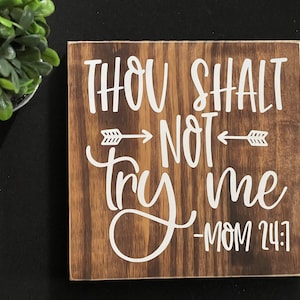 THOU SHALT
NOT
try me
-MOM 24:7